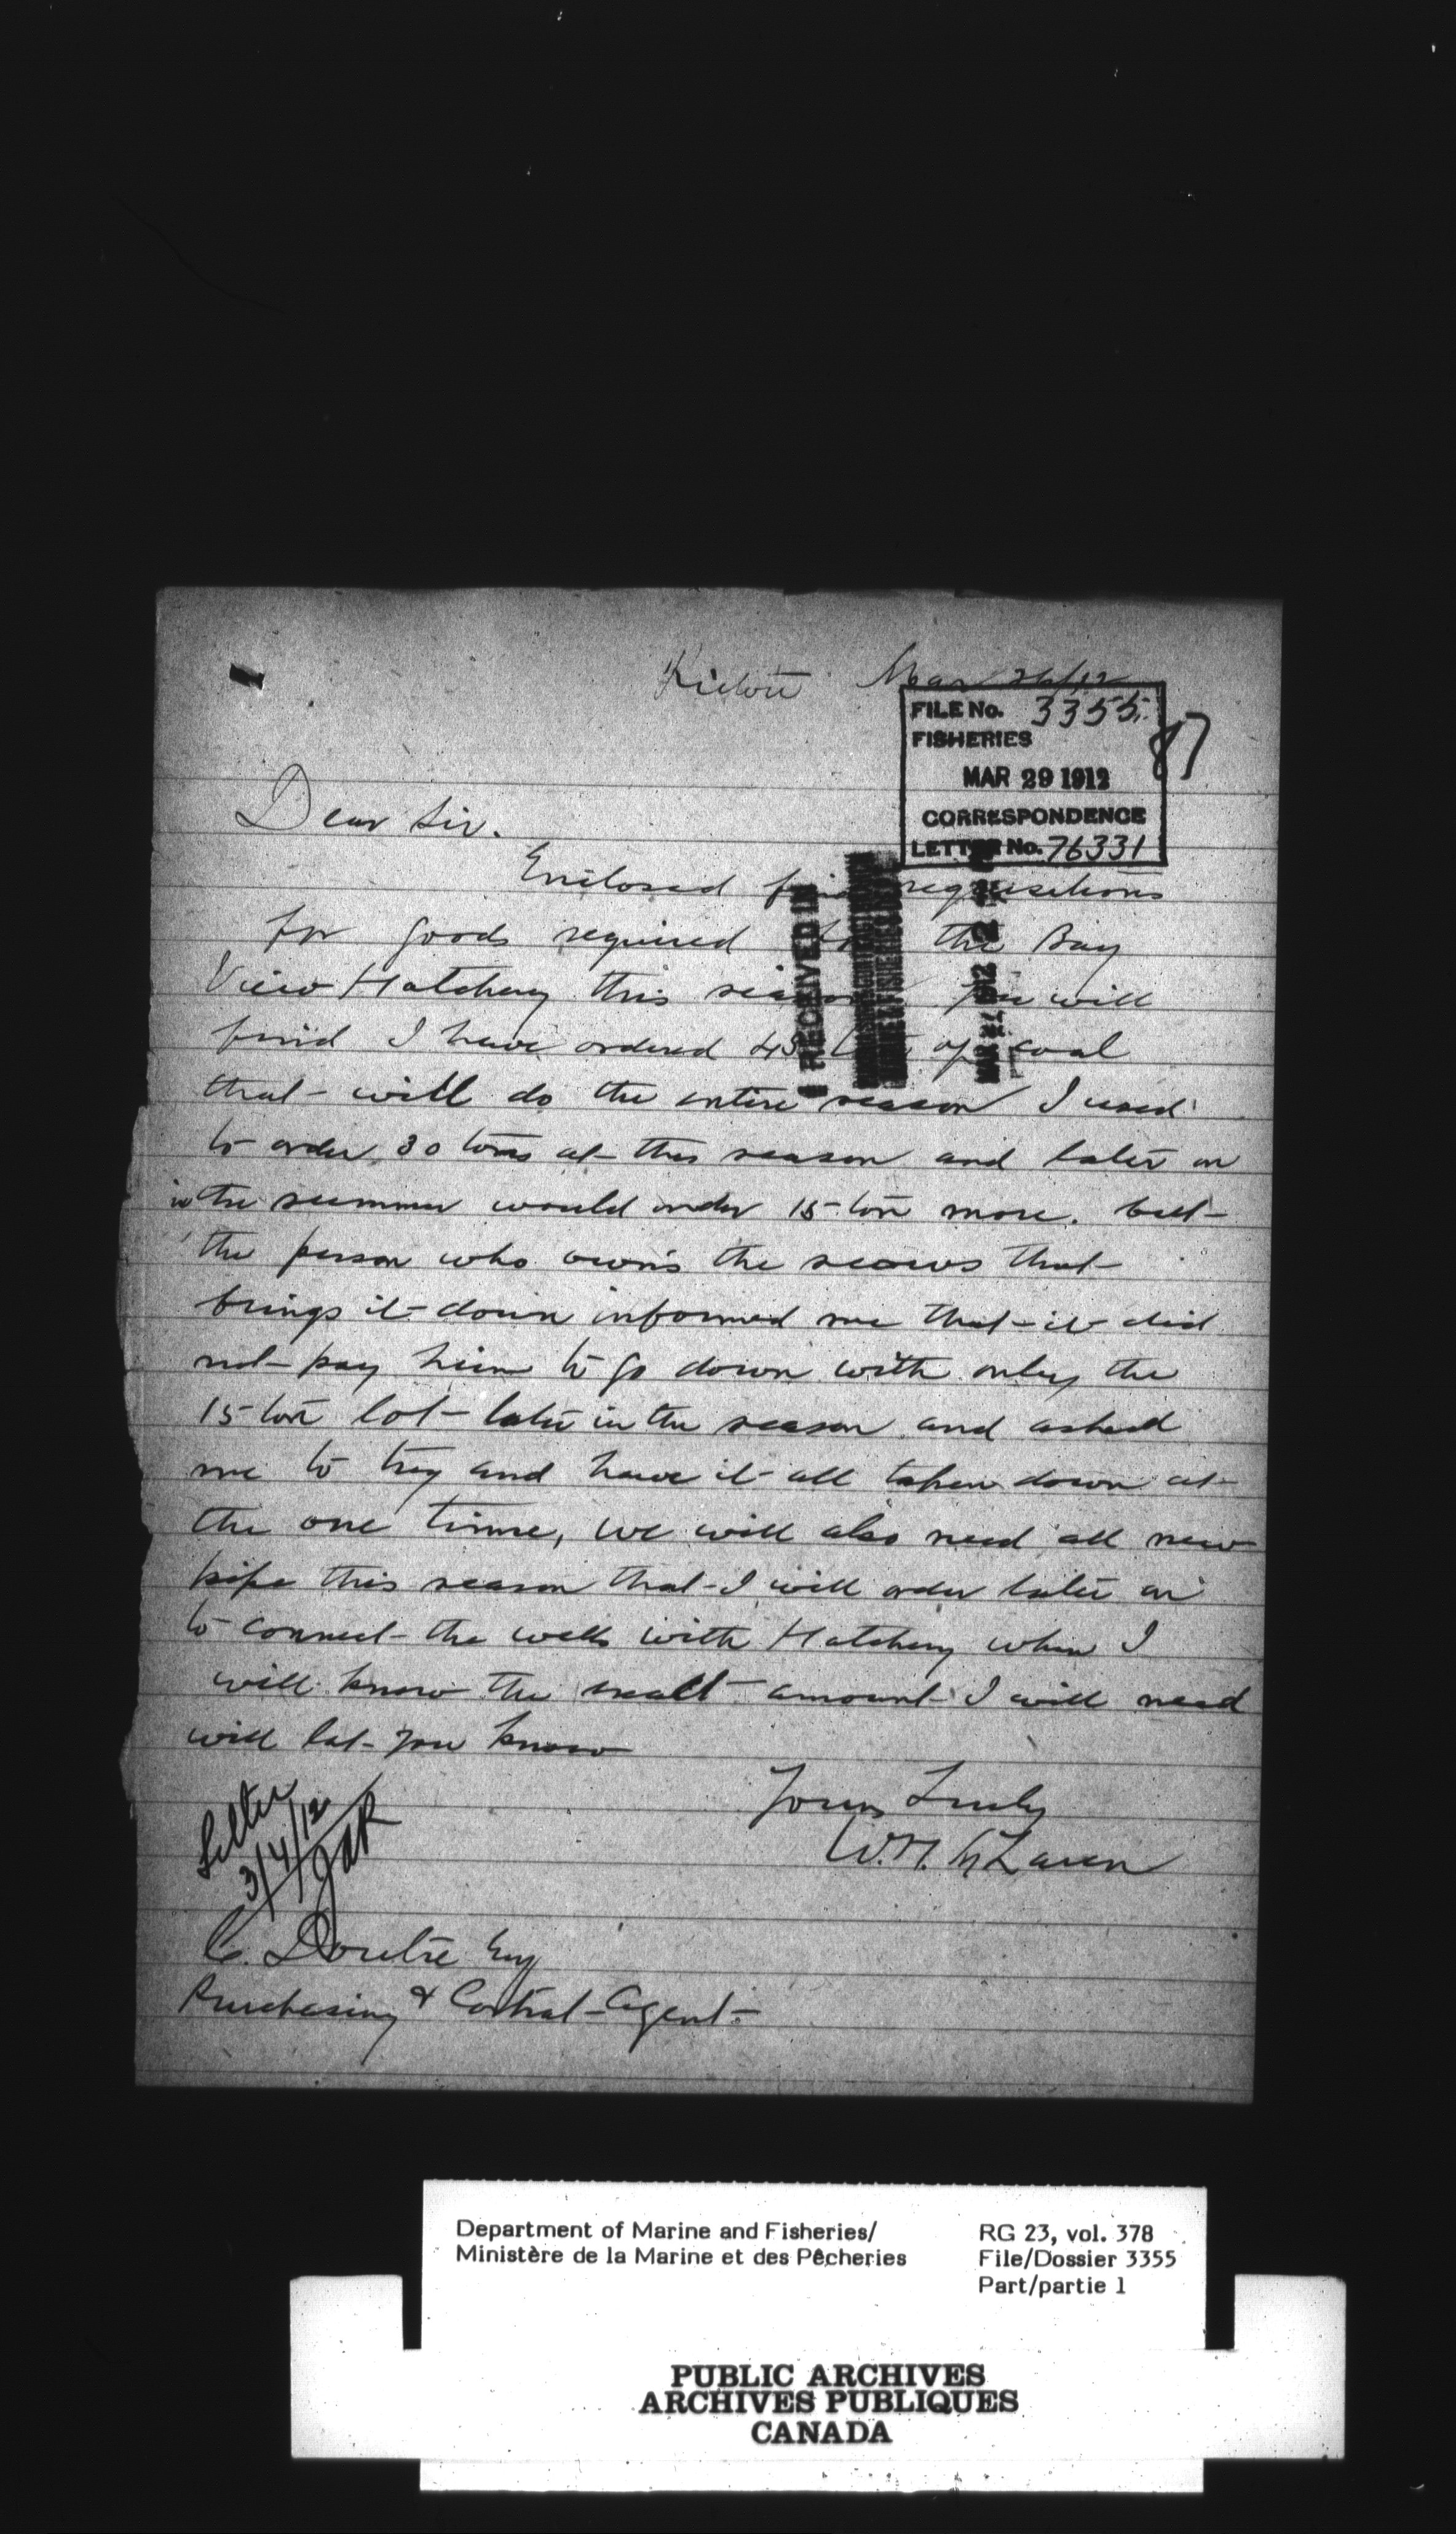 Pictou Mar 26/12
FILE No. 3355.
FISHERIES
87
MAR 29 1912
CORRESPONDENCE
LETTER No. 76331
Dear Sir.
Enclosed find requisitions
for goods required for the Bay
View Hatchery this season You will
find I have ordered 45 tons of coal
that will do the entire season I used
to order 30 tons at this season and later on
in the summer would order 15 ton more. but
the person who owns the scows that
brings it down informed me that it did
not pay him to go down with only the
15 ton lot later in the season and asked
me to try and have it all taken down at
the one time, we will also need all new
pipe this season that I will order later on
to connect the wells with Hatchery when I
will know the exact amount I will need
will let you know
Yours Truly
W.H. McLaren
RECEIVED IN
Letter
3/4/12
C. Doutre Esq
Purchasing & Contract Agent
Department of Marine and Fisheries/
Ministère de la Marine et des Pêcheries
RG 23, vol. 378
File/Dossier 3355
Part/partie 1
PUBLIC ARCHIVES
ARCHIVES PUBLIQUES
CANADA